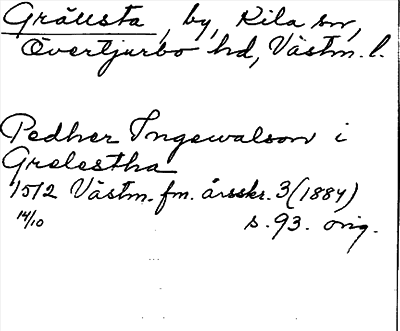 Grällsta, by, Kila sn,
Övertjurbo hd, Västm. l.
Pedher Ingewalson i
Grelestha
1512 Västm. fm. årsskr. 3 (1884)
14/10 s. 93. orig.